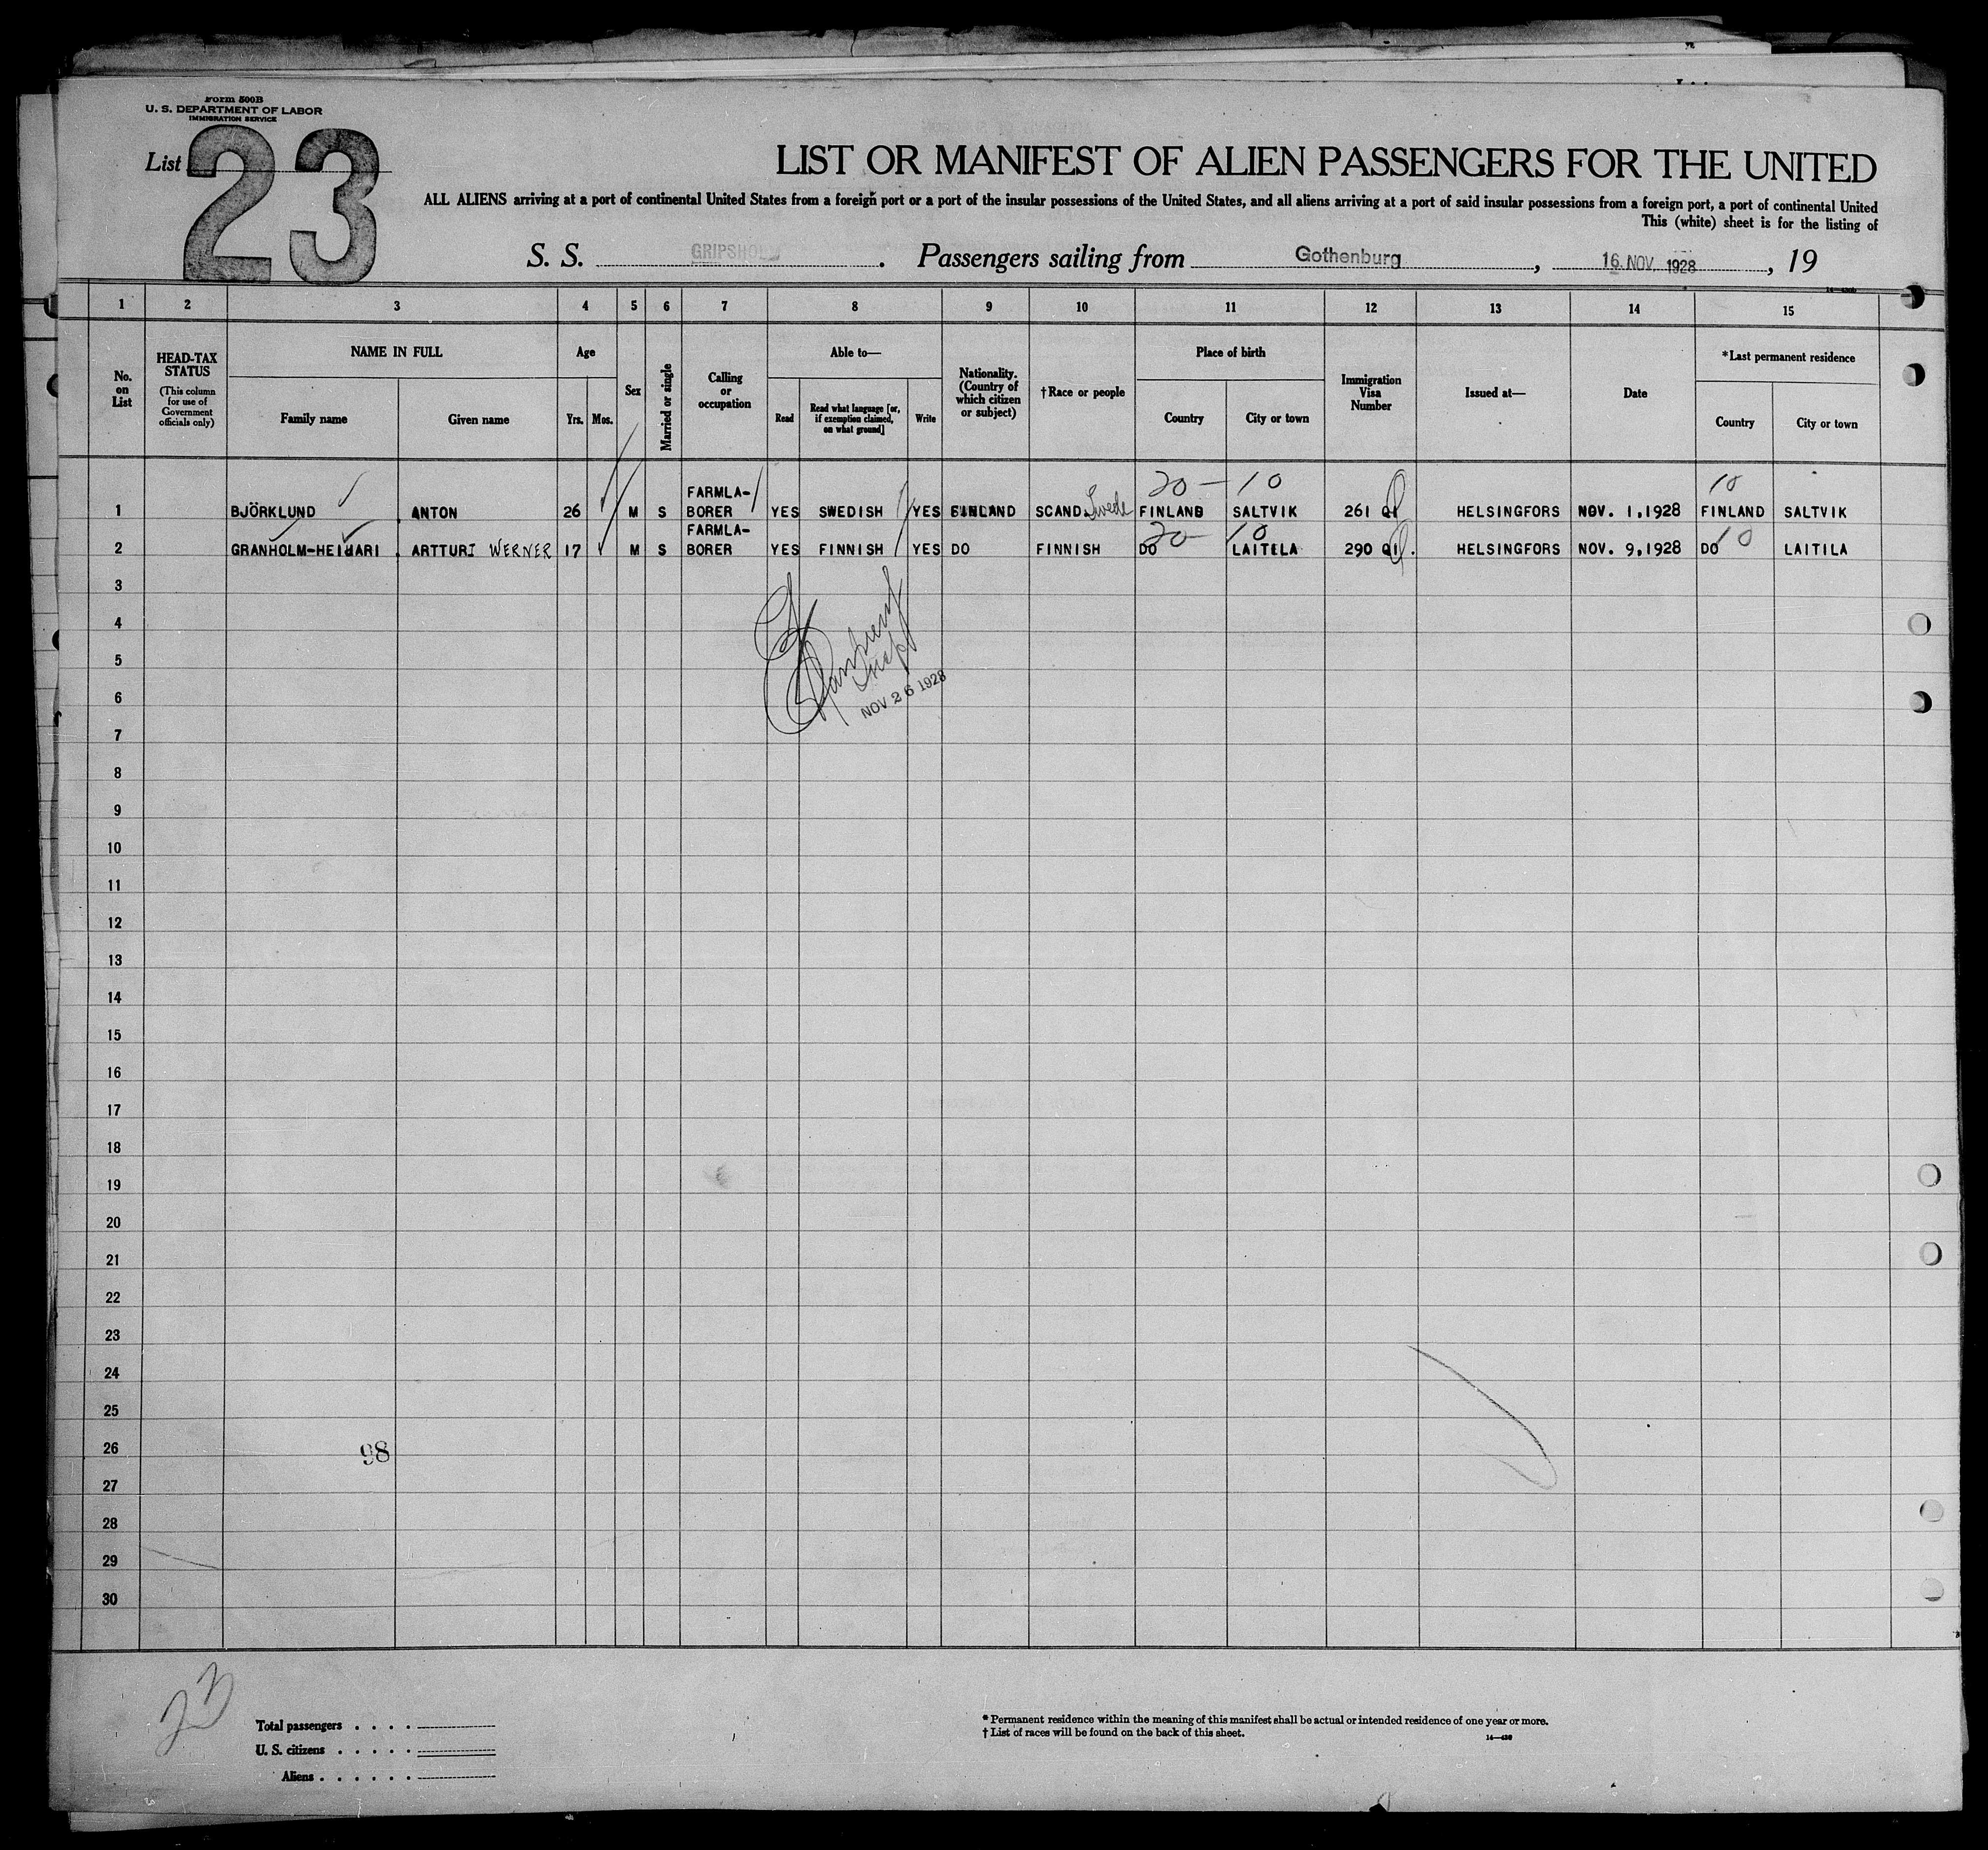 Form 500B
U. S. DEPARTMENT OF LABOR
IMMIGRATION SERVICE
List 23
LIST OR MANIFEST OF ALIEN PASSENGERS FOR THE UNITED
ALL ALIENS arriving at a port of continental United States from a foreign port or a port of the insular possessions of the United States, and all aliens arriving at a port of said insular possessions from a foreign port, a port of continental United
This (white) sheet is for the listing of
S. S. GRIPSHOLM . Passengers sailing from Gothenburg , 16 NOV. 1928 , 19
1 2 3 4 5 6 7 8 9 10 11 12 13 14 15
No. on List
HEAD-TAX STATUS
(This column for use of Government officials only)
NAME IN FULL
Family name
Given name
Age
Yrs. Mos.
Sex
Married or single
Calling or occupation
Able to—
Read
Read what language [or, if exemption claimed, on what ground]
Write
Nationality. (Country of which citizen or subject)
†Race or people
Place of birth
Country
City or town
Immigration Visa Number
Issued at—
Date
*Last permanent residence
Country
City or town
20 - 10 10
1 BJÖRKLUND ANTON 26 M S FARMLA-BORER YES SWEDISH YES FINLAND SCAND Swede FINLAND SALTVIK 261 QI HELSINGFORS NOV. 1,1928 FINLAND SALTVIK
20- 10 10
2 GRANHOLM-HEIJARI ARTTURI WERNER 17 M S FARMLA-BORER YES FINNISH YES DO FINNISH DO LAITILA 290 QI. HELSINGFORS NOV. 9,1928 DO LAITILA
3
4
5
6
NOV 26 1928
7
8
9
10
11
12
13
14
15
16
17
18
19
20
21
22
23
24
25
26 98
27
28
29
30
23
Total passengers . . . .
U. S. citizens . . . . .
Aliens . . . . . .
* Permanent residence within the meaning of this manifest shall be actual or intended residence of one year or more.
† List of races will be found on the back of this sheet.